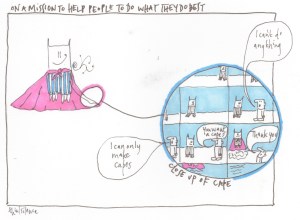 ON A MISSION TO HELP PEOPLE TO DO WHAT THEY DO BEST
I can't do
anything
I can only
make
capes
You want
a cape?
Thank you
CLOSE UP OF CAPE